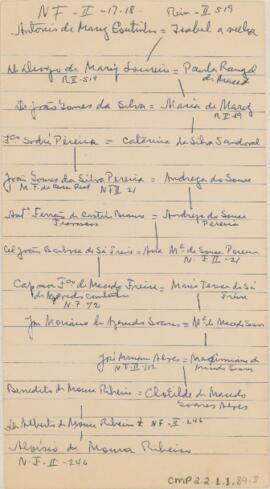 NF - II - 17-18. Rhein - II 519
Antonio de Mariz Coutinho = Isabel a velha
de Diogo de Mariz Loureiro = Paula Rangel
R II - 519 de Macedo
João Gomes da Silva = Maria de Mariz
R II
Sodré Pereira = Catarina da Silva Sandoval
João Gomes da Silva Pereira = Andreza de Souza
M.F. da Casa Real NF II 21
Antº Ferrão de Castel Branco = Andreza de Souza
Pereira
Cel João Barbosa de Sá Freire = Ana Mª de Souza Pereira
N.F. II - 21
Cap mor de Macedo Freire = Maria Tereza de Sá
de Azeredo Coutinho Freire
N.F. 72
Mariano de Azeredo Soares = Mª de Macedo Soares
José Mariano Alves = Maximiana de
N.F. II 112 Macedo Soares
Benedito de Moura Ribeiro = Clotilde de Macedo
Soares Alves
Alberto de Moura Ribeiro NF - II - 246
Aloísio de Moura Ribeiro
N.F. II - 246
CMP 2 2.1.1.84.8